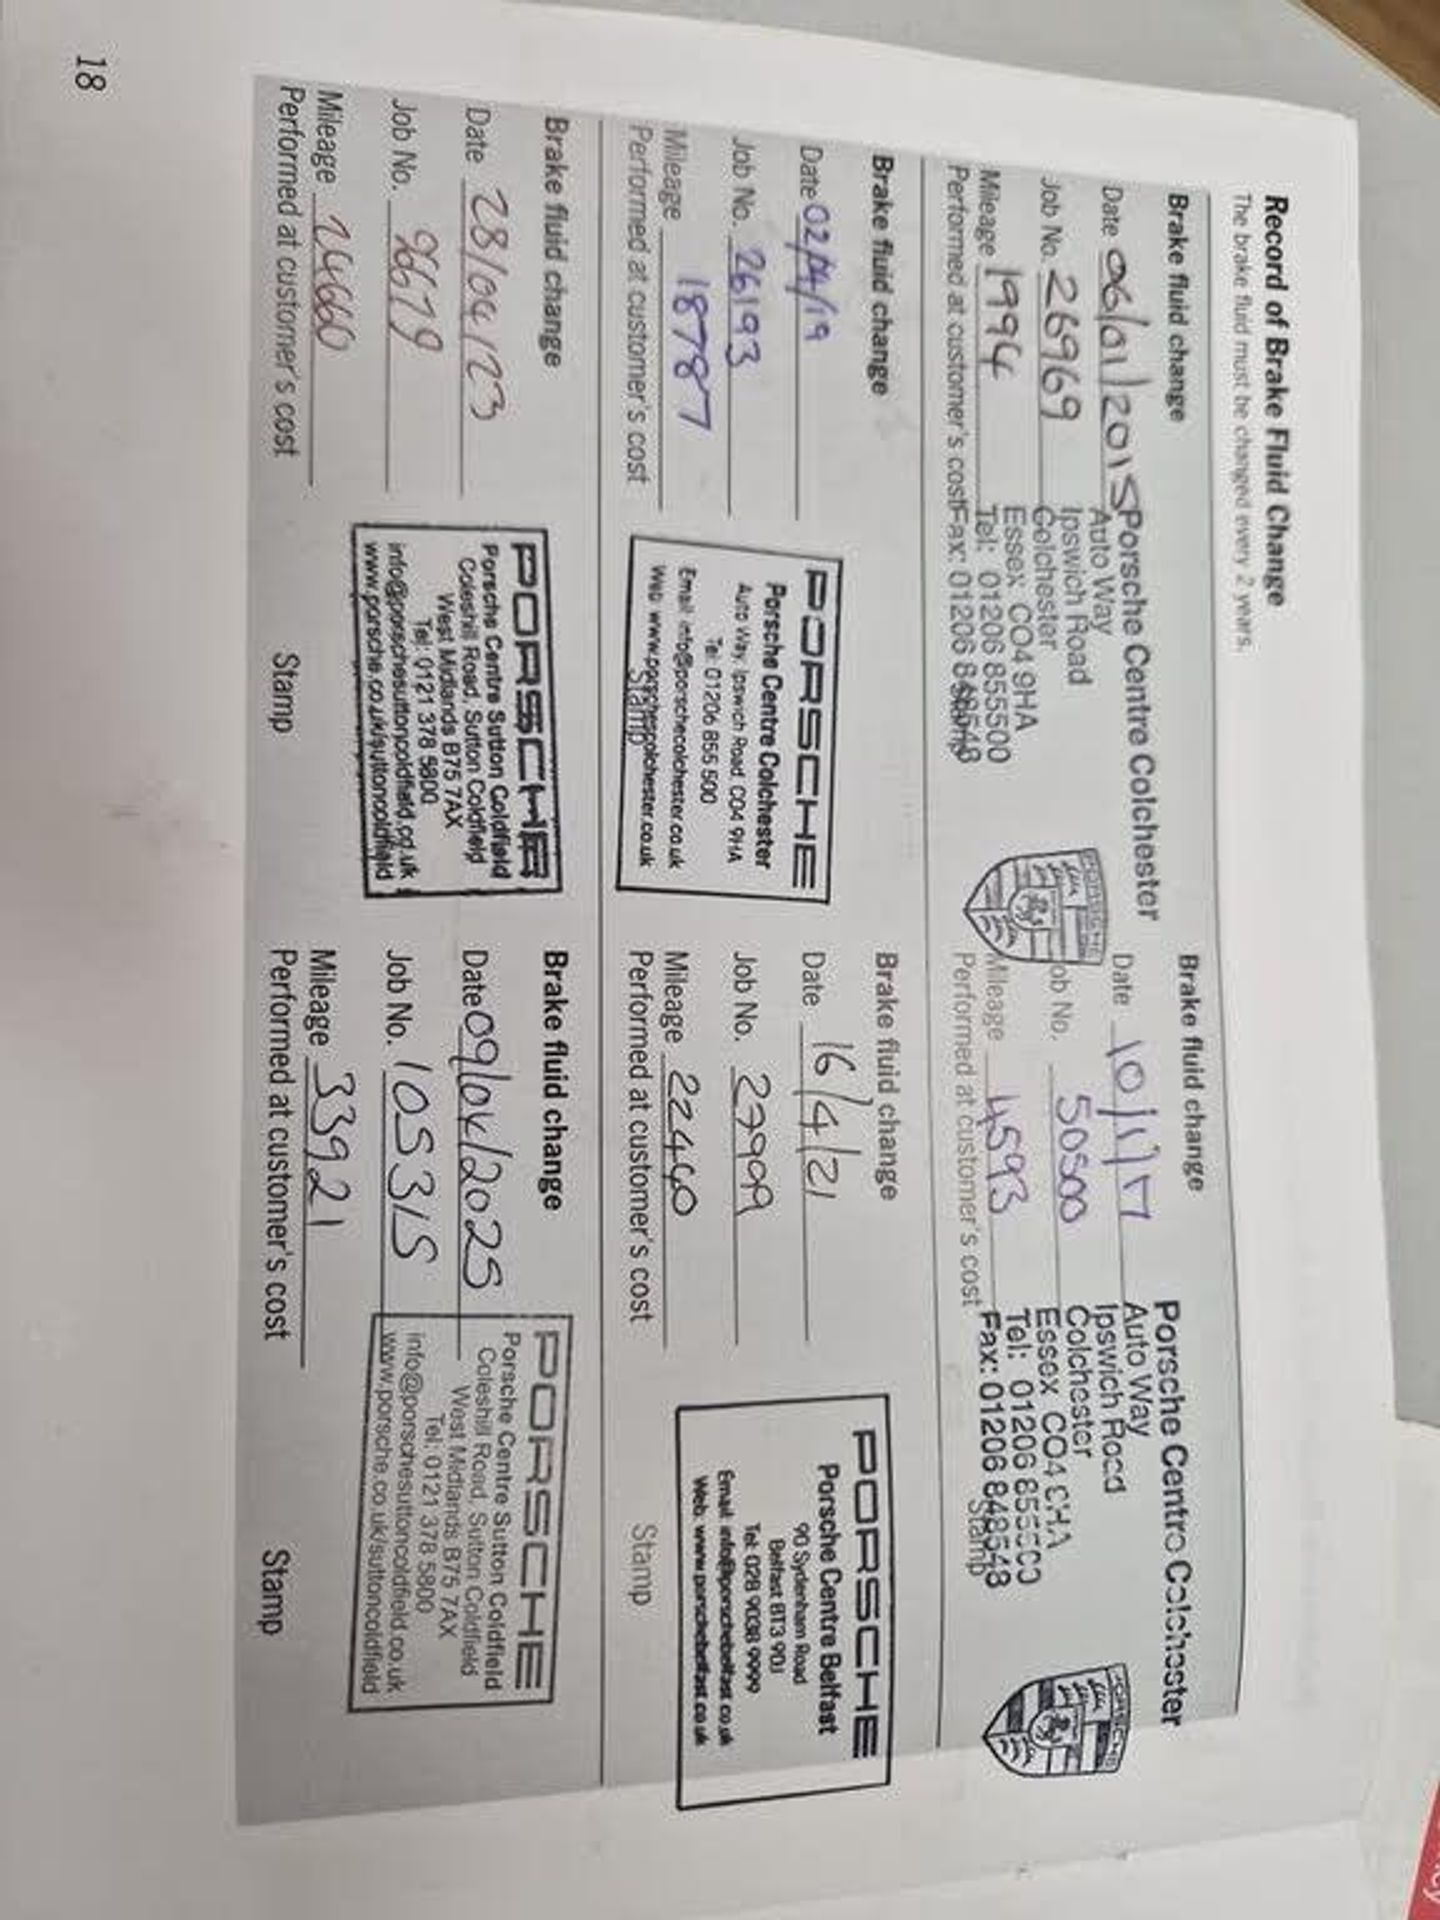 Record of Brake Fluid Change
The brake fluid must be changed every 2 years.
Brake fluid change
Date 06/01/2015
Job No. 26969
Mileage 1994
Performed at customer's cost
Porsche Centre Colchester
Auto Way
Ipswich Road
Colchester
Essex CO4 9HA
Tel: 01206 855500
Fax: 01206 848548
Stamp
PORSCHE
Brake fluid change
Date 10/1/17
Job No. 50500
Mileage 4593
Performed at customer's cost
Porsche Centre Colchester
Auto Way
Ipswich Road
Colchester
Essex CO4 9HA
Tel: 01206 855500
Fax: 01206 848548
Stamp
PORSCHE
Brake fluid change
Date 02/04/19
Job No. 26193
Mileage 18787
Performed at customer's cost
PORSCHE
Porsche Centre Colchester
Auto Way, Ipswich Road CO4 9HA
Tel: 01206 855 500
Email: info@porschecolchester.co.uk
Web: www.porschecolchester.co.uk
Stamp
Brake fluid change
Date 16/4/21
Job No. 27999
Mileage 22440
Performed at customer's cost
PORSCHE
Porsche Centre Belfast
90 Sydenham Road
Belfast BT3 9DJ
Tel: 028 9038 9999
Email: info@porschebelfast.co.uk
Web: www.porschebelfast.co.uk
Stamp
Brake fluid change
Date 28/04/23
Job No. 9679
Mileage 24660
Performed at customer's cost
PORSCHE
Porsche Centre Sutton Coldfield
Coleshill Road, Sutton Coldfield
West Midlands B75 7AX
Tel: 0121 378 5800
info@porschesuttoncoldfield.co.uk
www.porsche.co.uk/suttoncoldfield
Stamp
Brake fluid change
Date 09/04/2025
Job No. 105315
Mileage 33921
Performed at customer's cost
PORSCHE
Porsche Centre Sutton Coldfield
Coleshill Road, Sutton Coldfield
West Midlands B75 7AX
Tel: 0121 378 5800
info@porschesuttoncoldfield.co.uk
www.porsche.co.uk/suttoncoldfield
Stamp
18